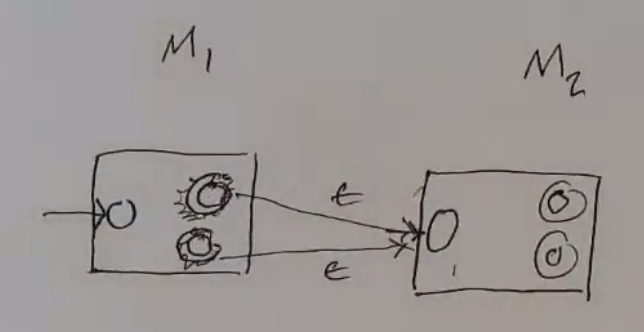 M₁
M₂
ε
ε